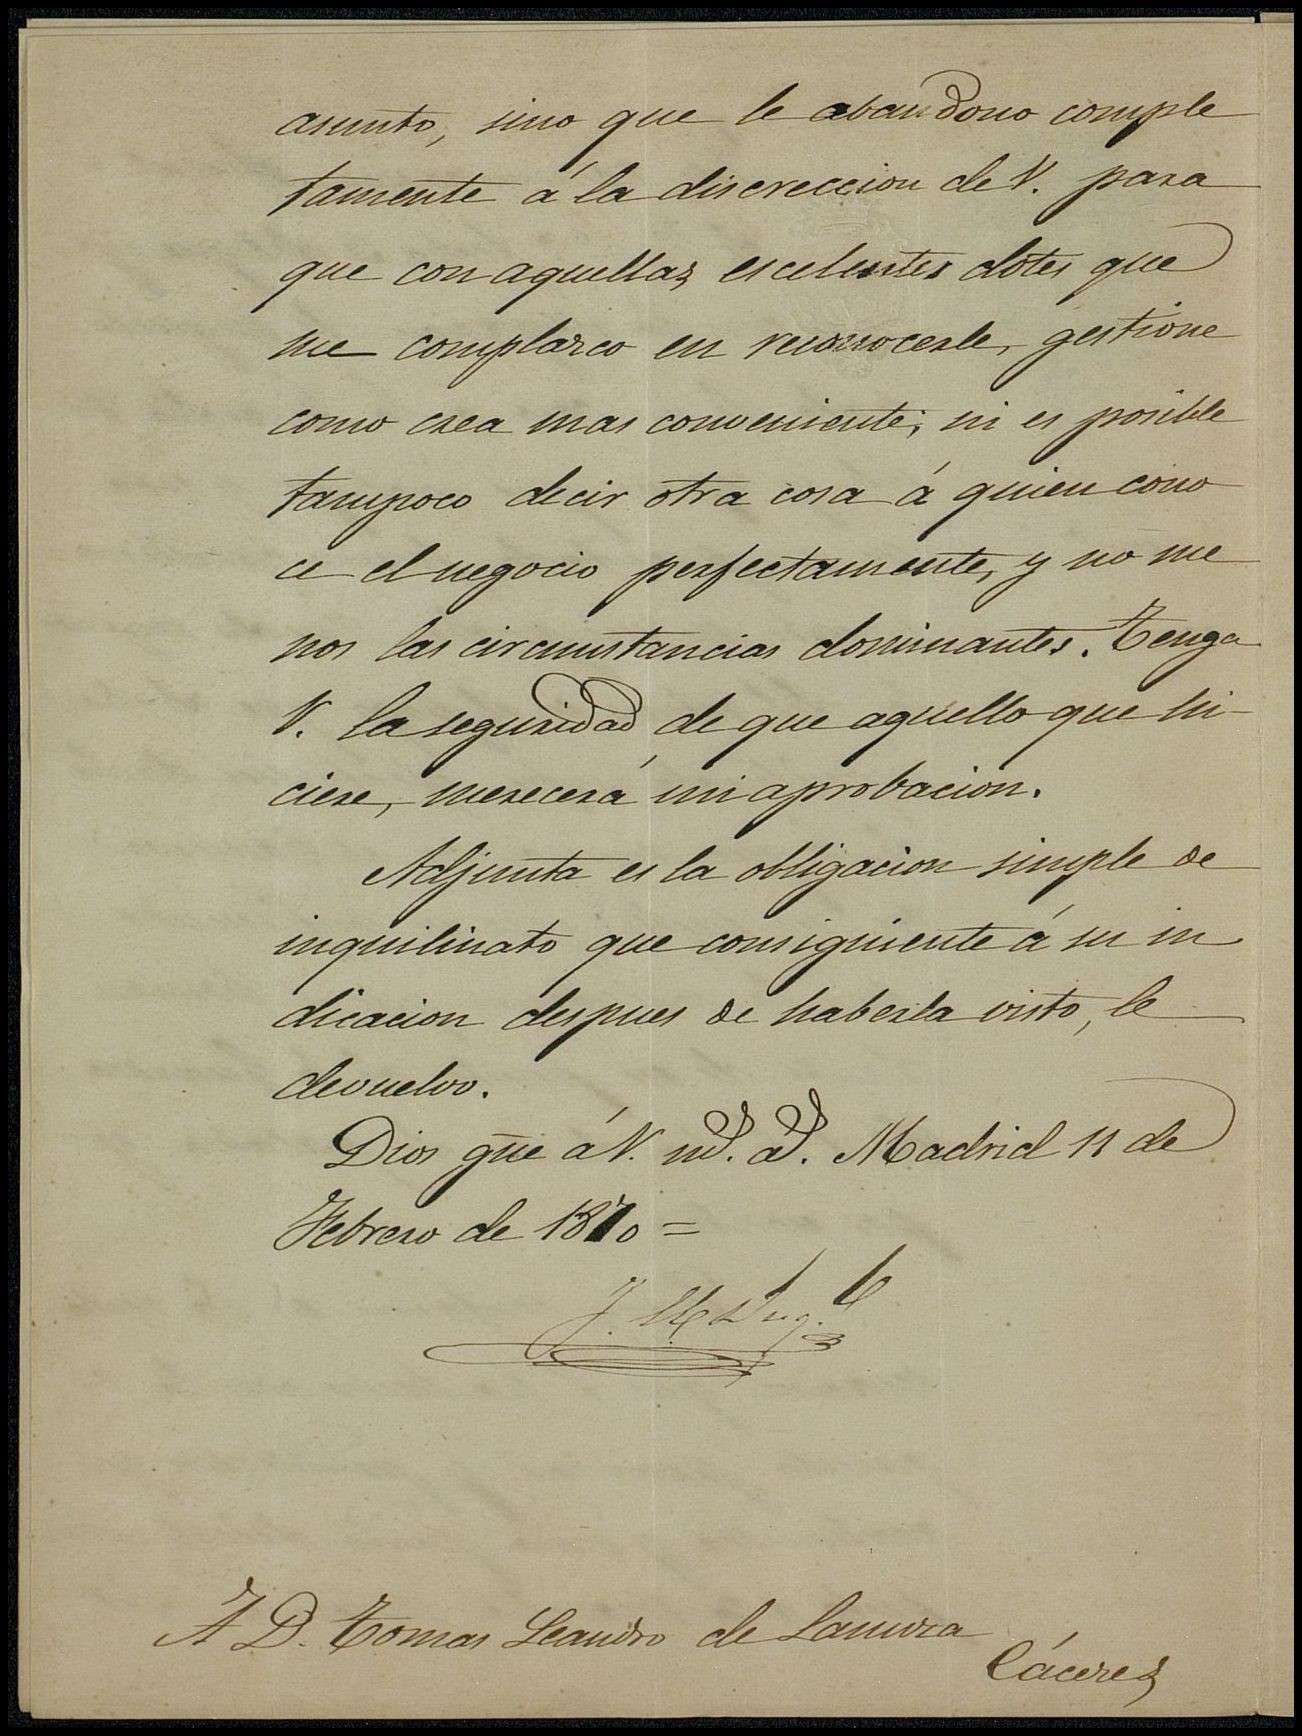 asunto, sino que le abandono comple
tamente á la discreccion de V. para
que con aquellas escelentes dotes que
me complazco en reconocerle, gestione
como crea mas conveniente; ni es posible
tampoco decir otra cosa á quien cono
ce el negocio perfectamente, y no me
nos las circunstancias dominantes. Tenga
V. la seguridad de que aquello que hi-
ciere, merecerá mi aprobacion.
Adjunta es la obligacion simple de
inquilinato que consiguiente á su in
dicacion despues de haberla visto, le
devuelvo.
Dios gue á V. ms. as. Madrid 11 de
Febrero de 1870 =
J. M.
A D. Tomas Leandro de Lanuza
Cáceres